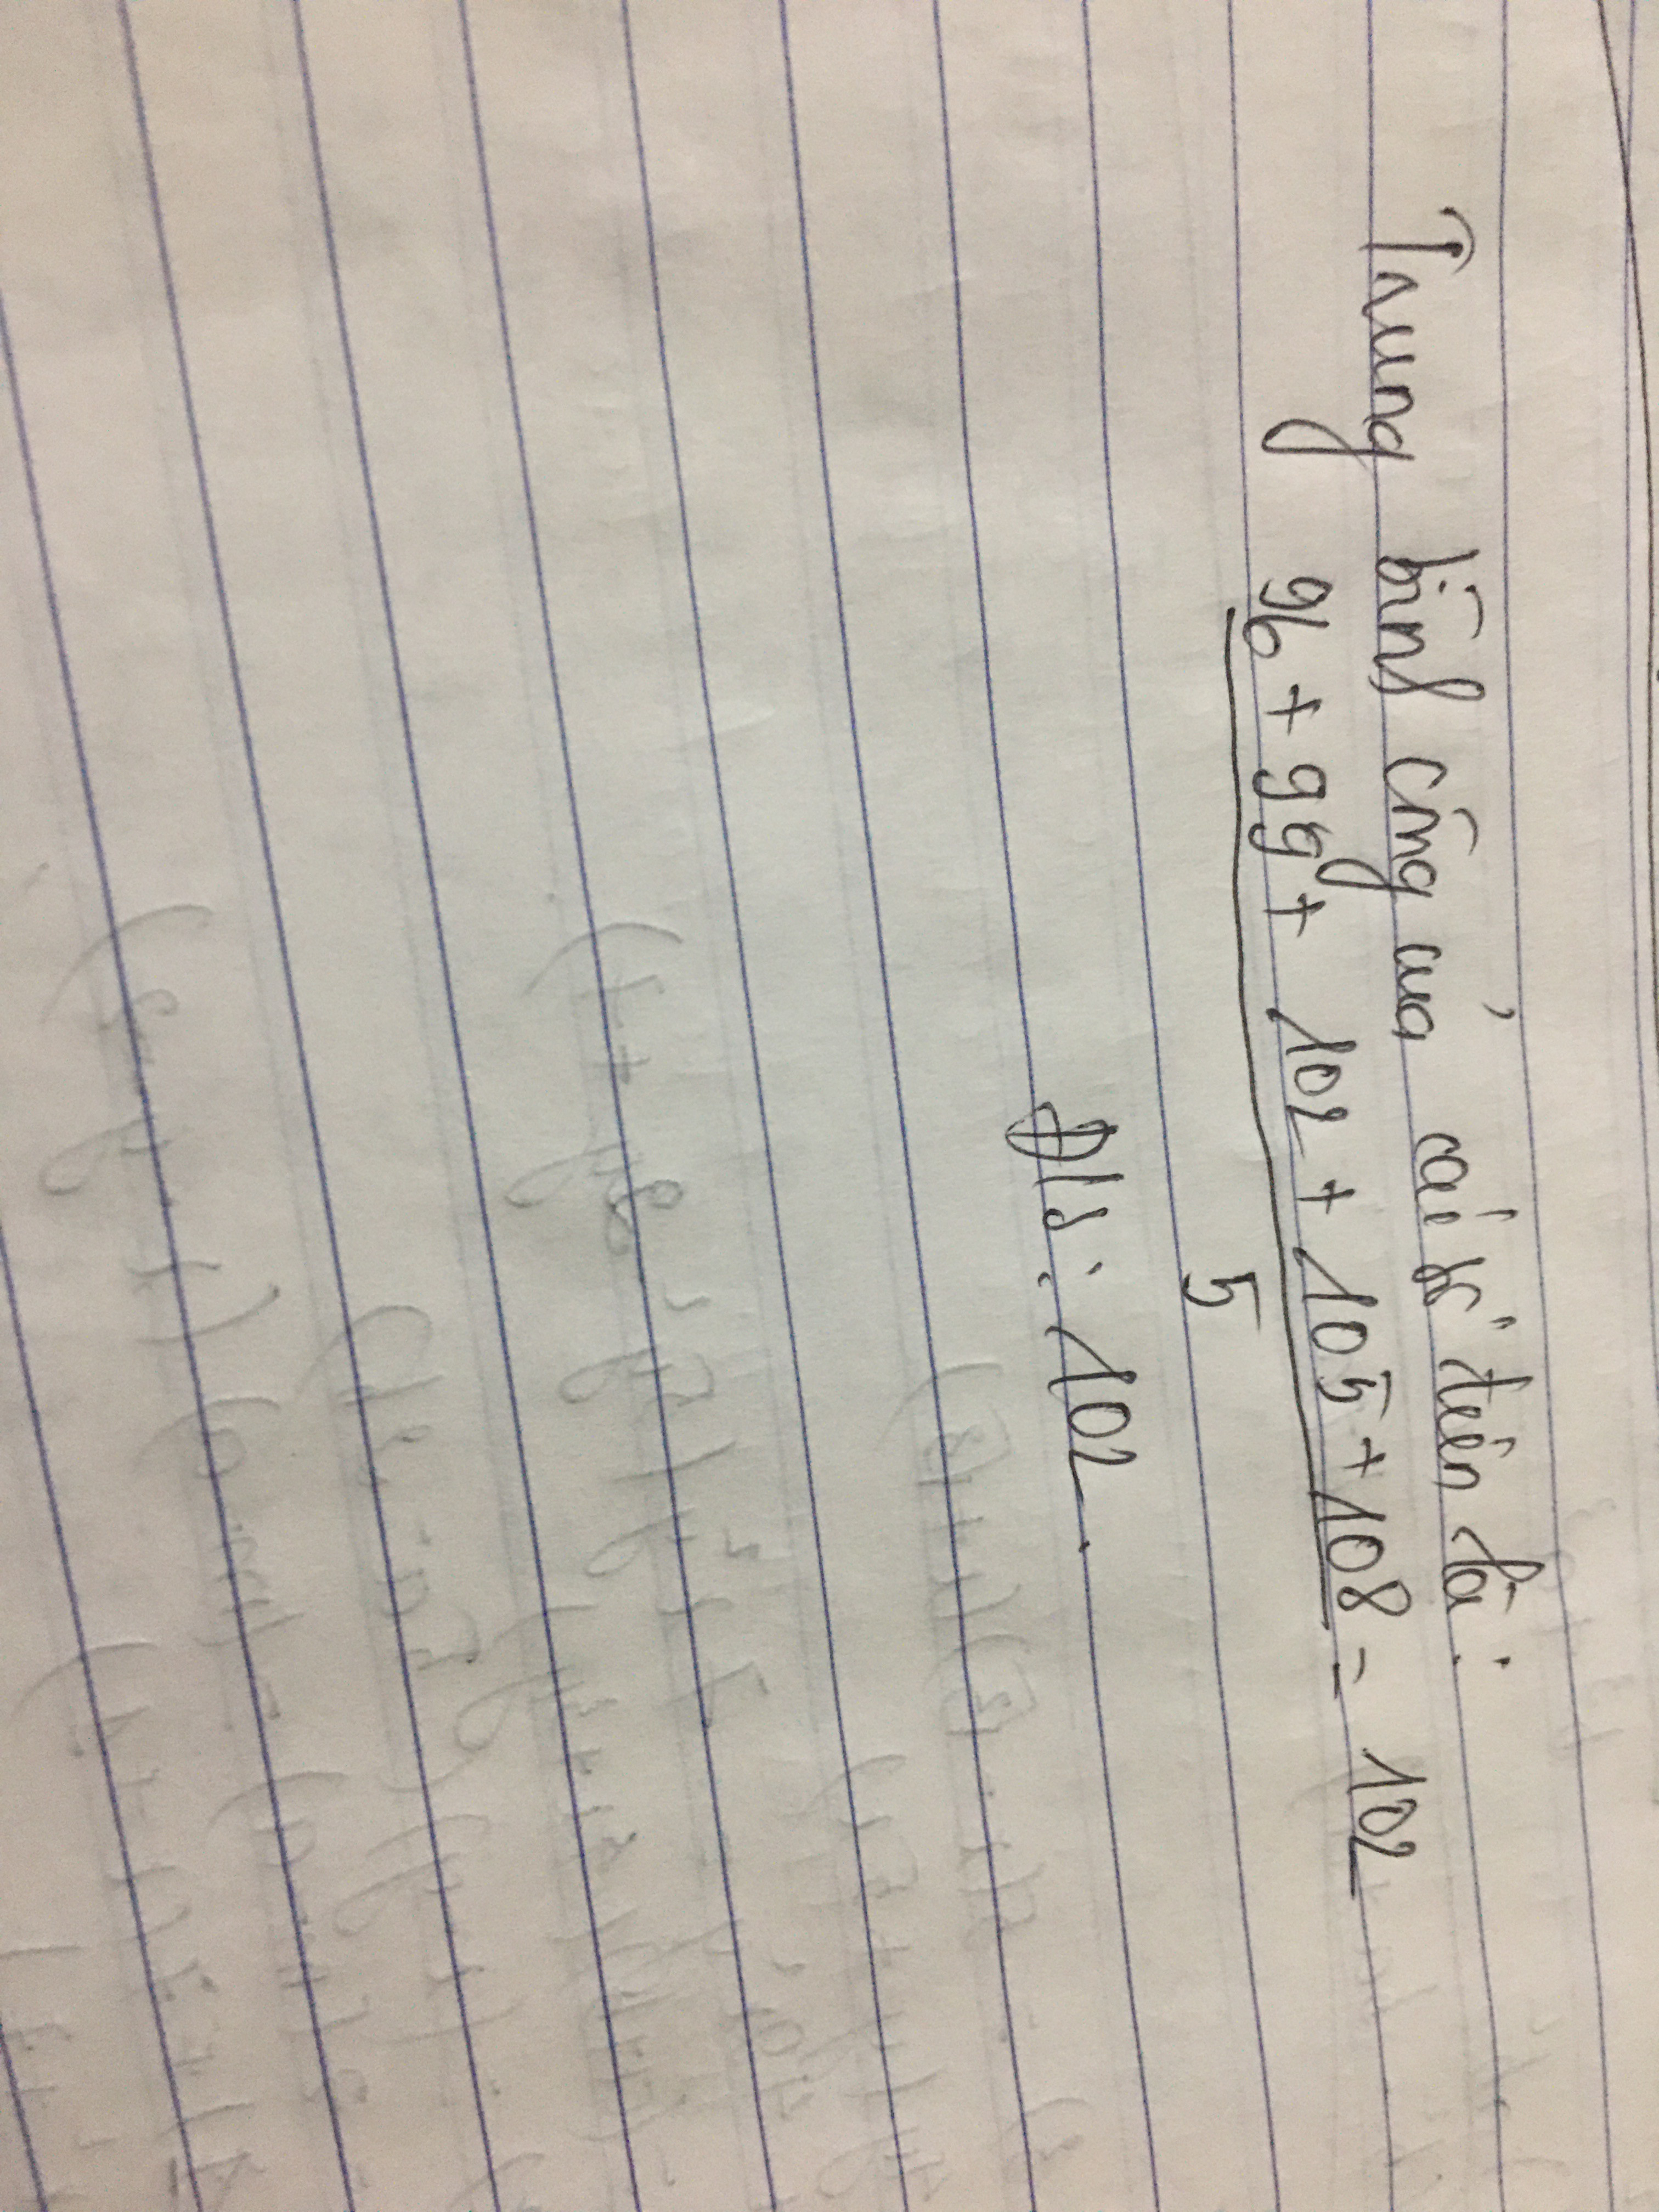 Trung bình cộng của các số trên là :
96 + 99 + 102 + 105 + 108 = 102
5
Đ/s : 102.